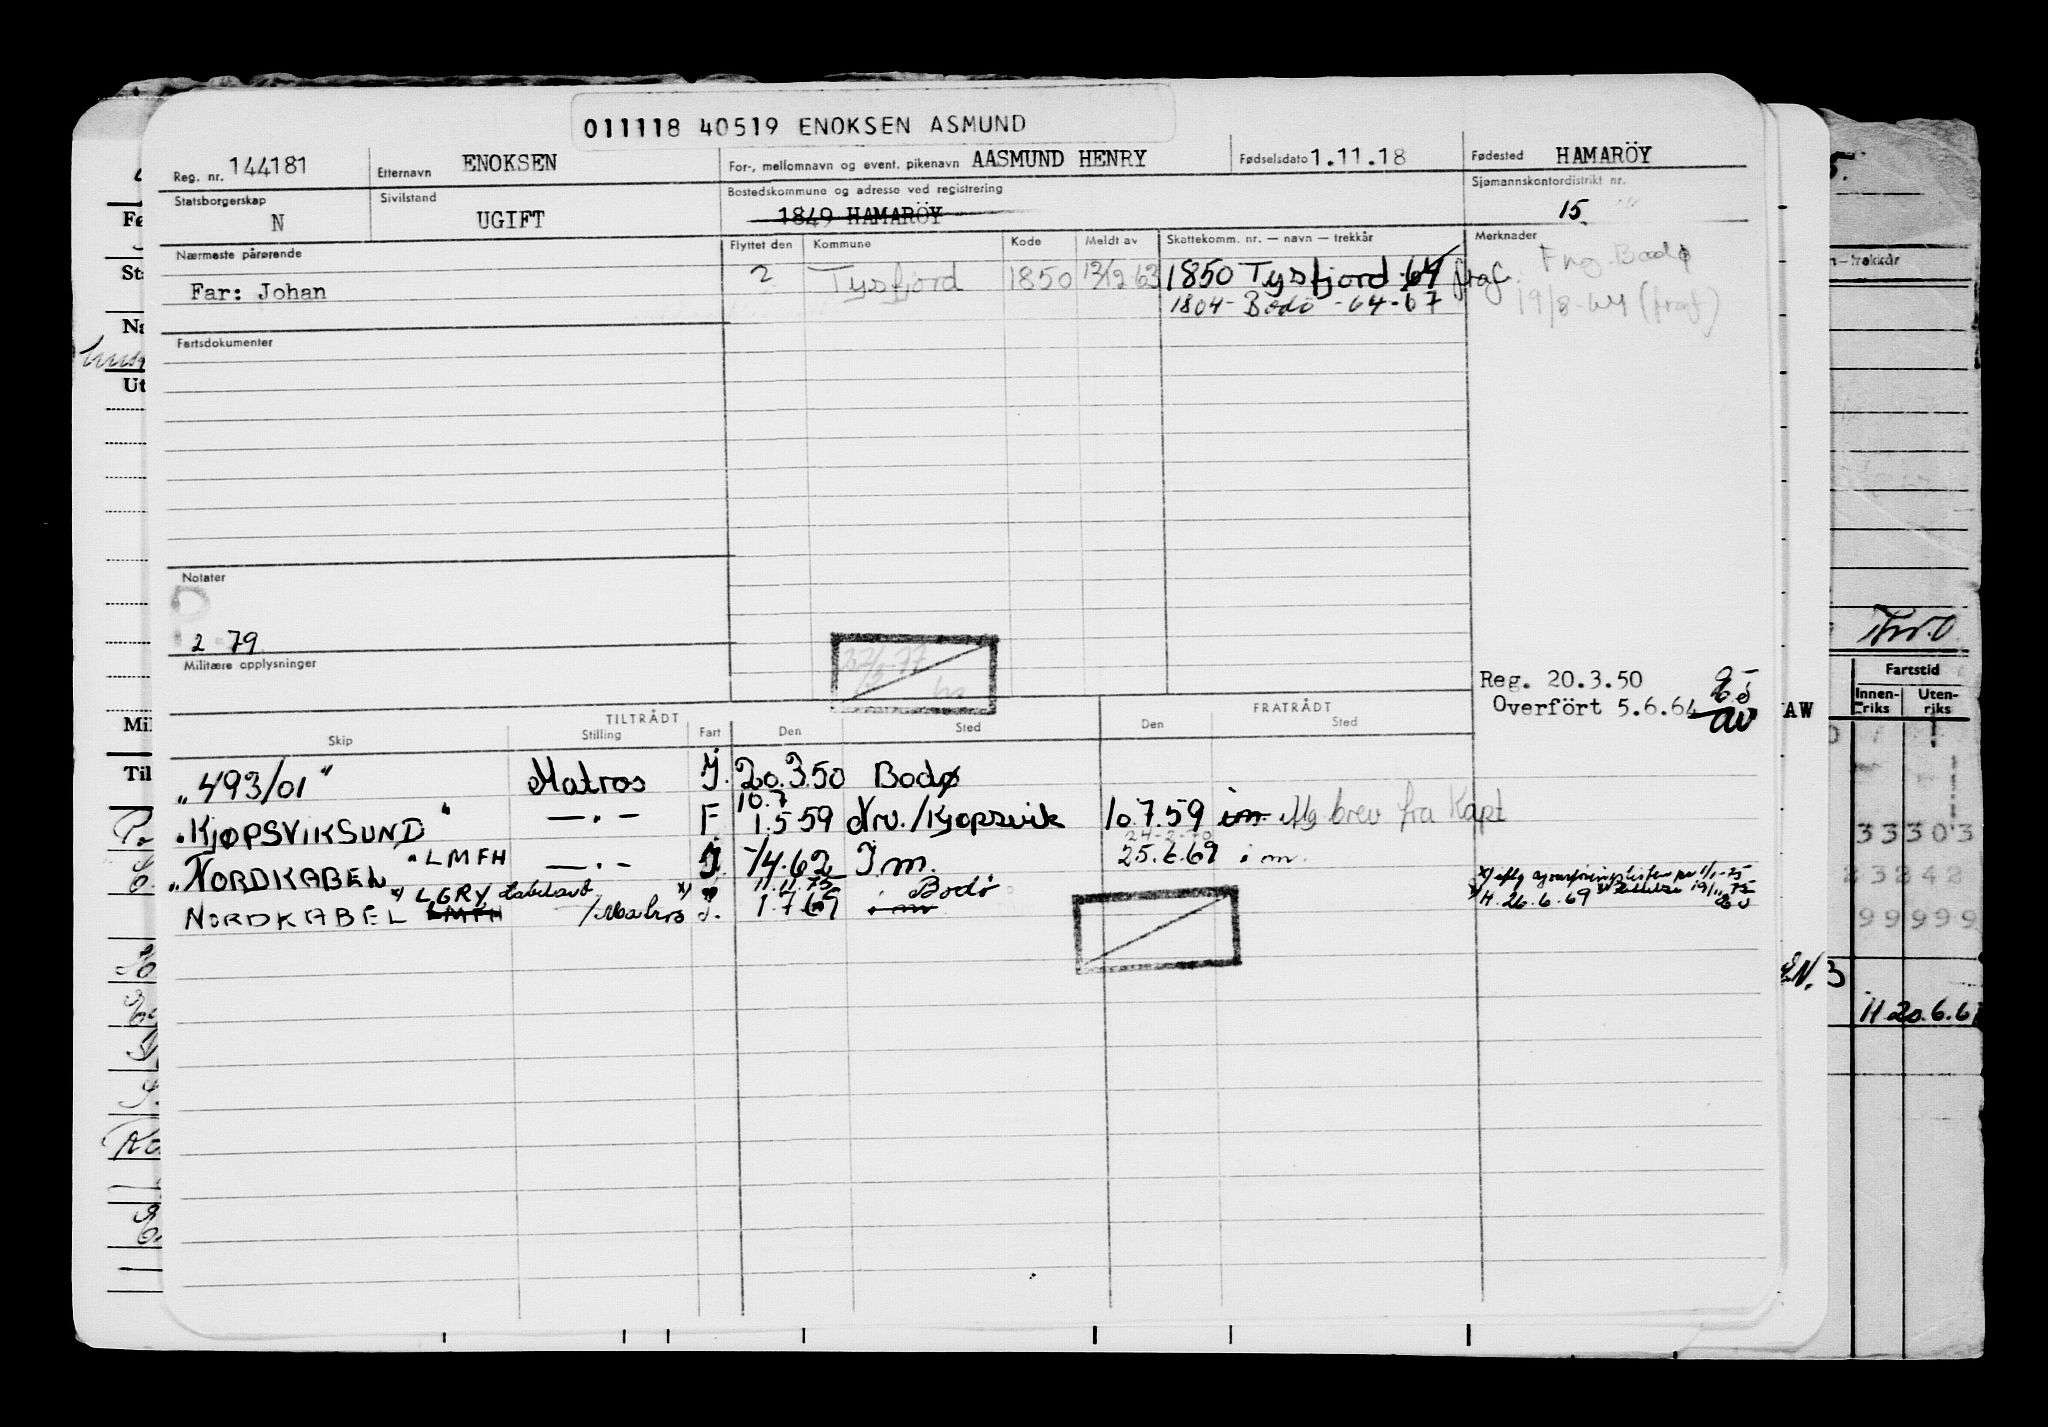 011118 40519 ENOKSEN ASMUND
Reg. nr. 144181 Etternavn ENOKSEN For-, mellomnavn og event. pikenavn AASMUND HENRY Fødselsdato 1.11.18 Fødested HAMARÖY
Statsborgerskap N Sivilstand UGIFT Bostedskommune og adresse ved registrering 1849 HAMARÖY Sjømannskontordistrikt nr. 15
Nærmeste pårørende Flyttet den Kommune Kode Meldt av Skattekomm. nr. — navn — trekkår Merknader
Far: Johan 2 Tysfjord 1850 13/12-63 1850 Tysfjord 64 fraf. Frg. Bodø
1804 - Bodö - 64-67 19/8-64 (fraf)
Fartsdokumenter
Notater
P
2 79
Militære opplysninger
Reg. 20.3.50
Overfört 5.6.64
TILTRÅDT FRATRÅDT
Skip Stilling Fart Den Sted Den Sted
"493/01" Matros I. 20.3.50 Bodø
10.7
"KJØPSVIKSUND" — " — F 1.5 59 Nrv./Kjøpsvik 10.7.59 im Mg brev fra Kapt
24-2-70
"NORDKABEL" LMFH — " — I. 1/4.62 I m. 25.6.69 i m.
x) LGRY x) 11.11.75 Bodö
NORDKABEL LMFH /Matros I. 1.7.69 i m H. 26.6.69
Innen-riks Uten-riks
Fartstid
AW
33303
23242
99999
EN. 3
H 20.6.6
Fø
Sta
Na
Ut
Mil
Til